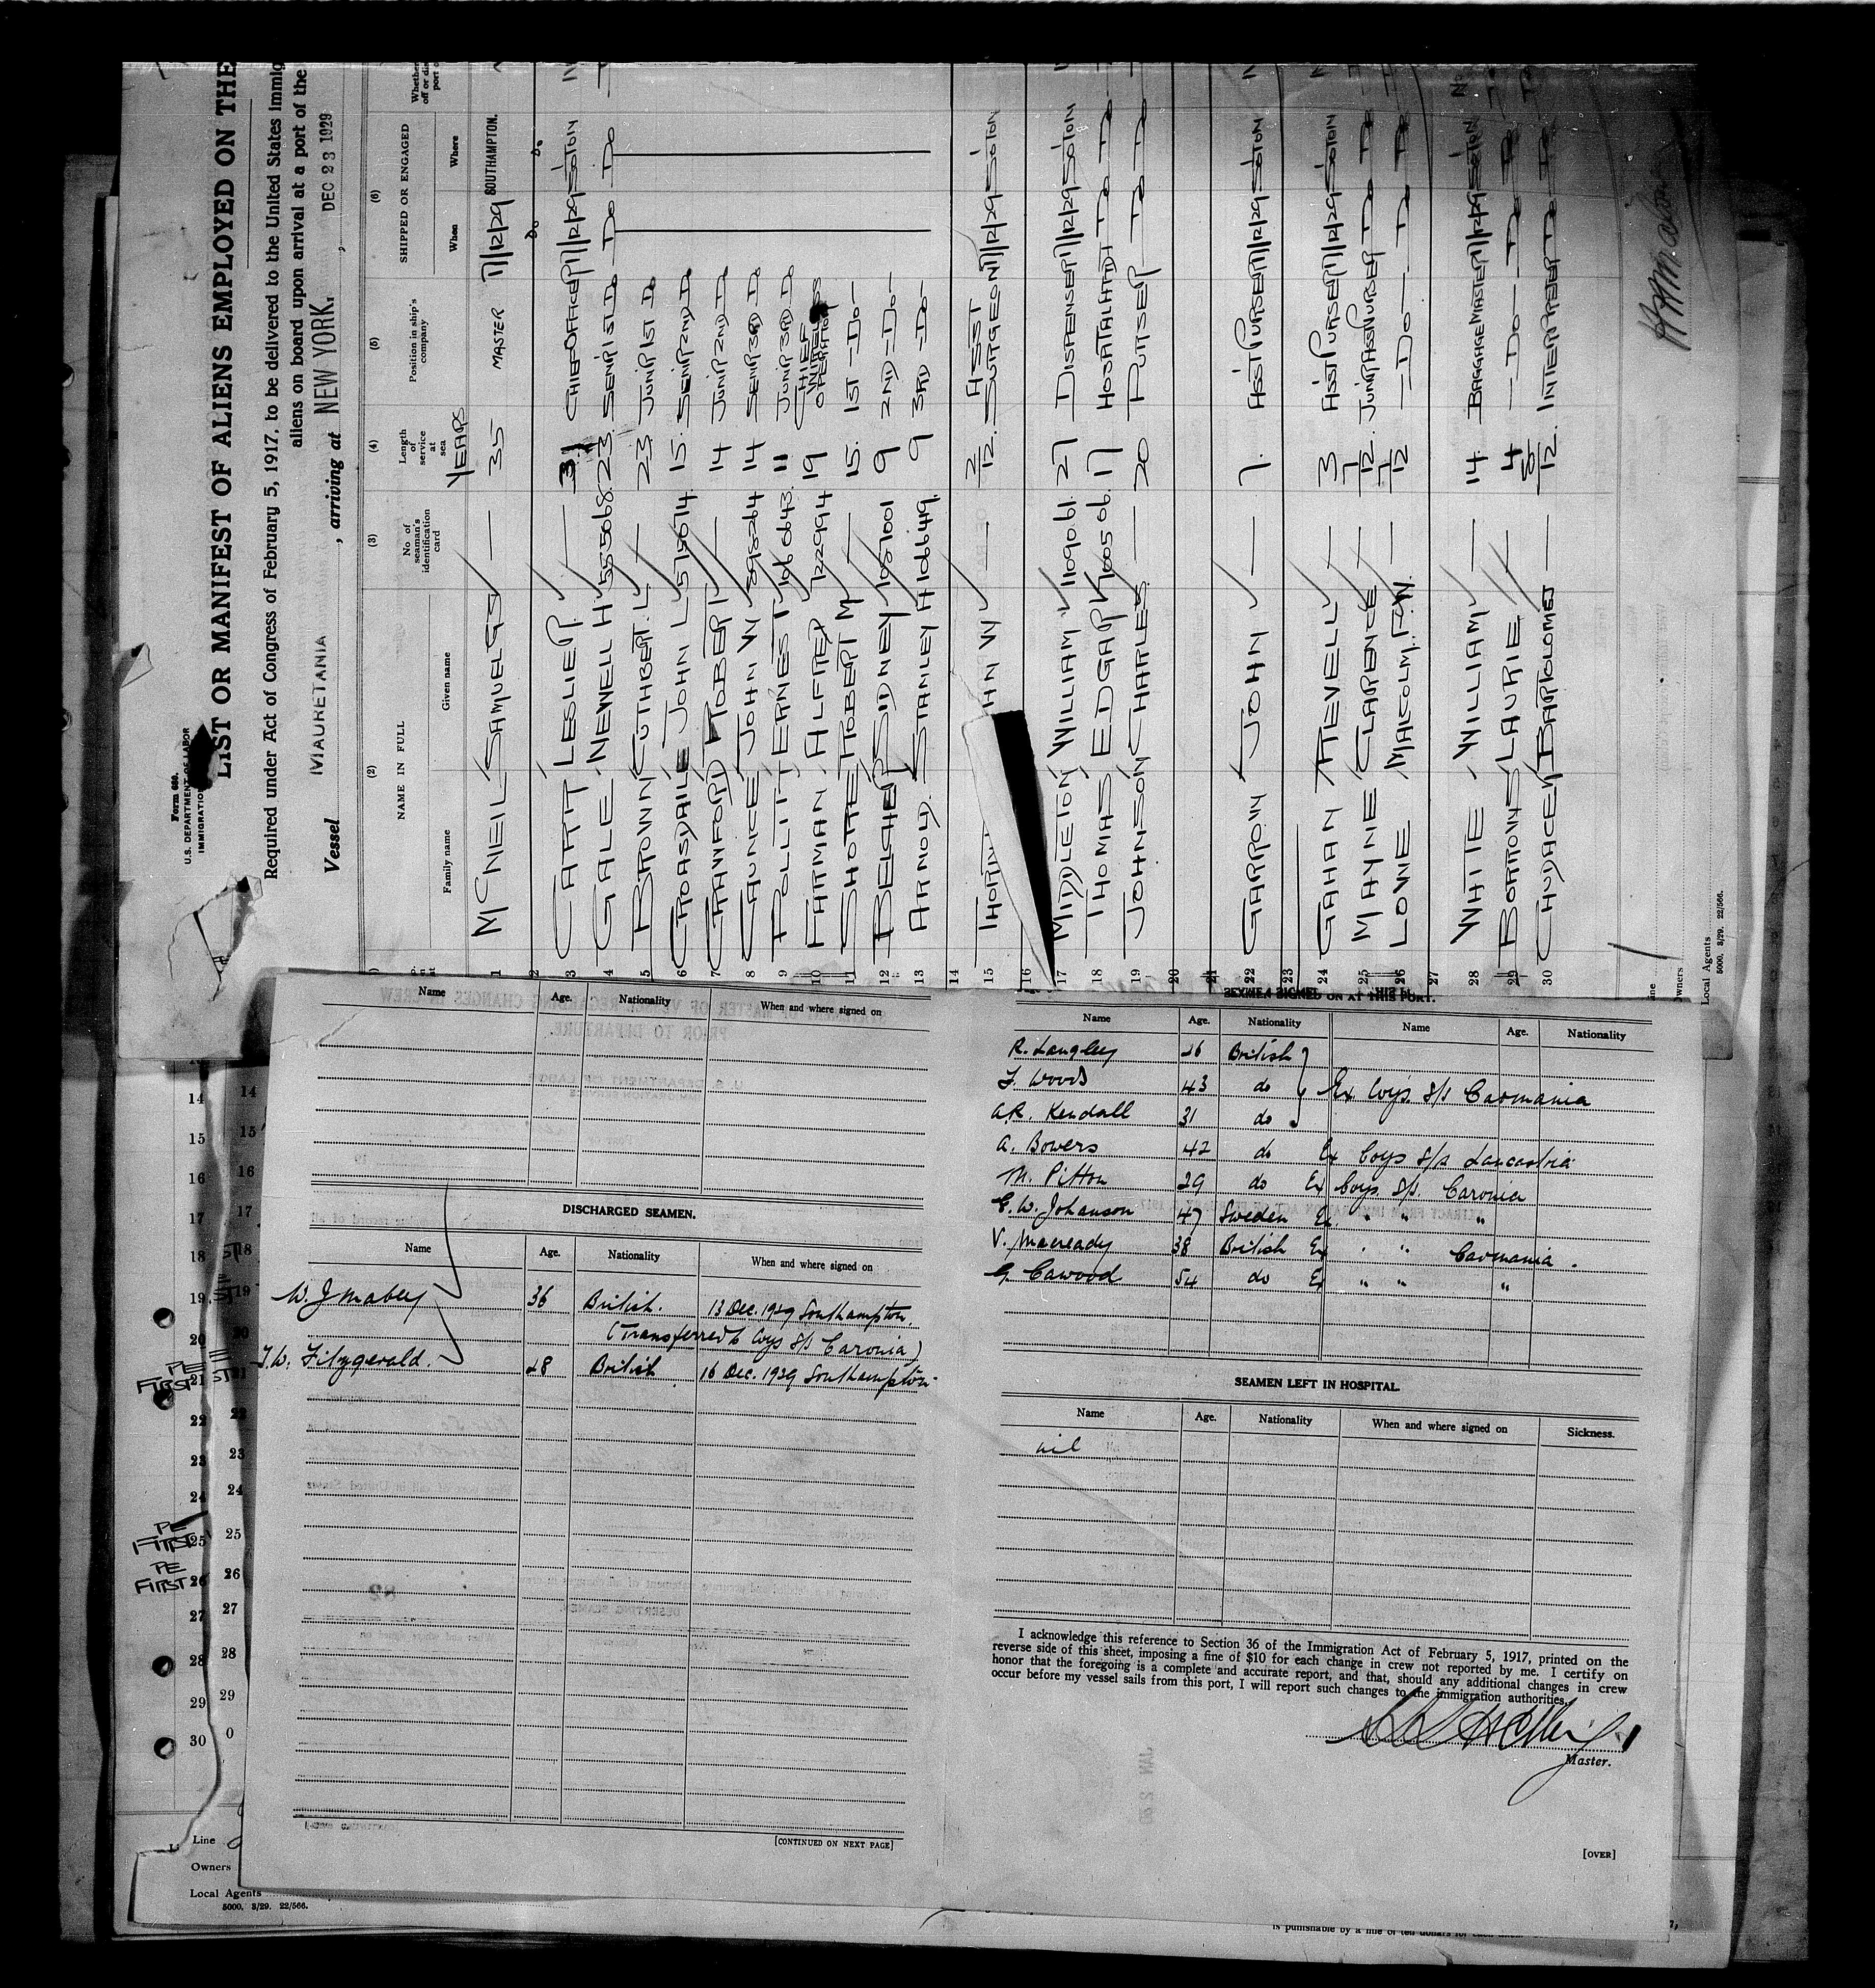 Form 680.
U.S. DEPARTMENT OF LABOR
IMMIGRATION
LIST OR MANIFEST OF ALIENS EMPLOYED ON THE
Required under Act of Congress of February 5, 1917, to be delivered to the United States Immig
aliens on board upon arrival at a port of the
Vessel MAURETANIA, arriving at NEW YORK, DEC 23 1929
(2) (3) (4) (5) (6)
NAME IN FULL
Family name Given name
No of seaman's identification card
Length of service at sea
YEARS
Position in ship's company
SHIPPED OR ENGAGED
When Where
1 McNEIL SAMUEL G S — 35 MASTER 11/12/29 SOUTHAMPTON.
2 do do
3 CARTT LESLIE R. — 31 CHIEF OFFICER 11/12/29 S'OTON
4 GALE NEWELL H 555068 23 SENR 1ST DO DO DO
5 BROWN CUTHBERT. L — 23 JUNR 1ST DO
6 CROASDAILE JOHN L 575674 15 SENR 2ND DO
7 CRAWFORD ROBERT — 14 JUNR 2ND DO
8 CAUNCE JOHN W 14 SENR 3RD DO
9 POLLITT ERNEST 1060643 11 JUNR 3RD DO
10 FARMAN ALFRED 122994 19 CHIEF WIRELESS OPERATOR
11 SHORTE ROBERT M — 15 1ST — DO —
12 BELCHER SIDNEY 9 2ND — DO —
13 ARNOLD STANLEY A 106649 9 3RD — DO —
14
15 JOHN W — 2/12 ASST SURGEON 11/12/29 S'OTON
17 MIDDLETON WILLIAM 1109061 27 DISPENSER 11/12/29 S'OTON
18 THOMAS EDGAR 1100506 17 HOSPITAL ATTDT DO DO
19 JOHNSON CHARLES — 20 PURSER DO DO
20
21
22 GARROW JOHN — 7 ASST PURSER 11/12/29 S'OTON
23
24 GAHAN REVELL — 3 ASST PURSER 11/12/29 S'OTON
25 MAYNE CLARENCE — 1/12 JUNR ASS PURSER DO DO
26 LOWE MALCOLM. F.W. — 1/12 — DO — DO DO
27
28 WHITE WILLIAM — 14 BAGGAGE MASTER 11/12/29 S'OTON
29 BORROWS LAURIE — 4 — DO — DO DO
30 CHUDACEK BARTOLOMEJ — 5/12 INTERPRETER DO DO
Local Agents
5000. 3/29. 22/566.
Name Age. Nationality When and where signed on
DISCHARGED SEAMEN.
Name Age. Nationality When and where signed on
W. J Mabey 36 British. 13 Dec. 1929 Southampton.
(Transferred to Coys S/s Caronia)
T.W. Fitzgerald. 28 British 16 Dec. 1929 Southampton
[CONTINUED ON NEXT PAGE]
SEAMEN SIGNED ON AT THIS PORT.
Name Age. Nationality Name Age. Nationality
R. Langley 26 British
F. Woods 43 do Ex Coys. S/s Carmania
A.R. Kendall 31 do
A. Bowers 42 do Ex Coys S/s Lancastria
M. Pitton 29 do Ex Coys. S/s. Caronia
E. W. Johanson 47 Sweden Ex. " " "
V. Macready 38 British Ex " " Carmania.
G. Cawood 54 do Ex " " "
SEAMEN LEFT IN HOSPITAL.
Name Age. Nationality When and where signed on Sickness.
nil
I acknowledge this reference to Section 36 of the Immigration Act of February 5, 1917, printed on the
reverse side of this sheet, imposing a fine of $10 for each change in crew not reported by me. I certify on
honor that the foregoing is a complete and accurate report, and that, should any additional changes in crew
occur before my vessel sails from this port, I will report such changes to the immigration authorities.
Master.
[OVER]
14
15
16
17
18
19
20
PE
FIRST 21
22
23
24
PE
FIRST 25
PE
FIRST 26
27
28
29
30
Line
Owners
Local Agents
5000. 3/29. 22/566.